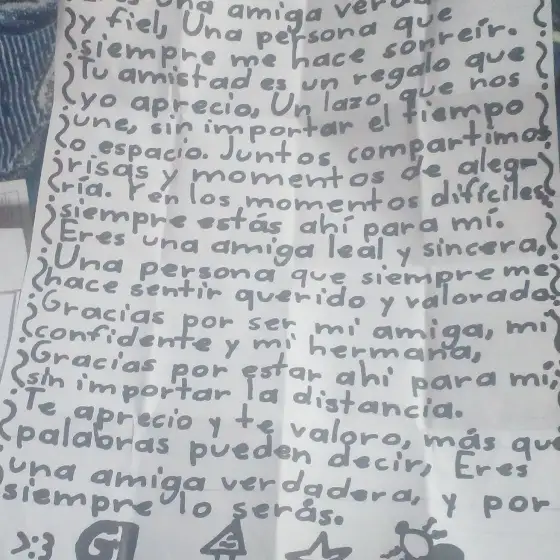 una amiga verda
y fiel, Una persona que
siempre me hace sonreír.
Tu amistad es un regalo que
yo aprecio, Un lazo que nos
une, sin importar el tiempo
o espacio. Juntos compartimos
risas y momentos de aleg-
ría. Y en los momentos difíciles
siempre estás ahí para mí.
Eres una amiga leal y sincera,
Una persona que siempre me
hace sentir querido y valorado
Gracias por ser mi amiga, mi
confidente y mi hermana,
Gracias por estar ahí para mí
sin importar la distancia.
Te aprecio y te valoro, más que
palabras pueden decir, Eres
una amiga verdadera, y por
siempre lo serás.